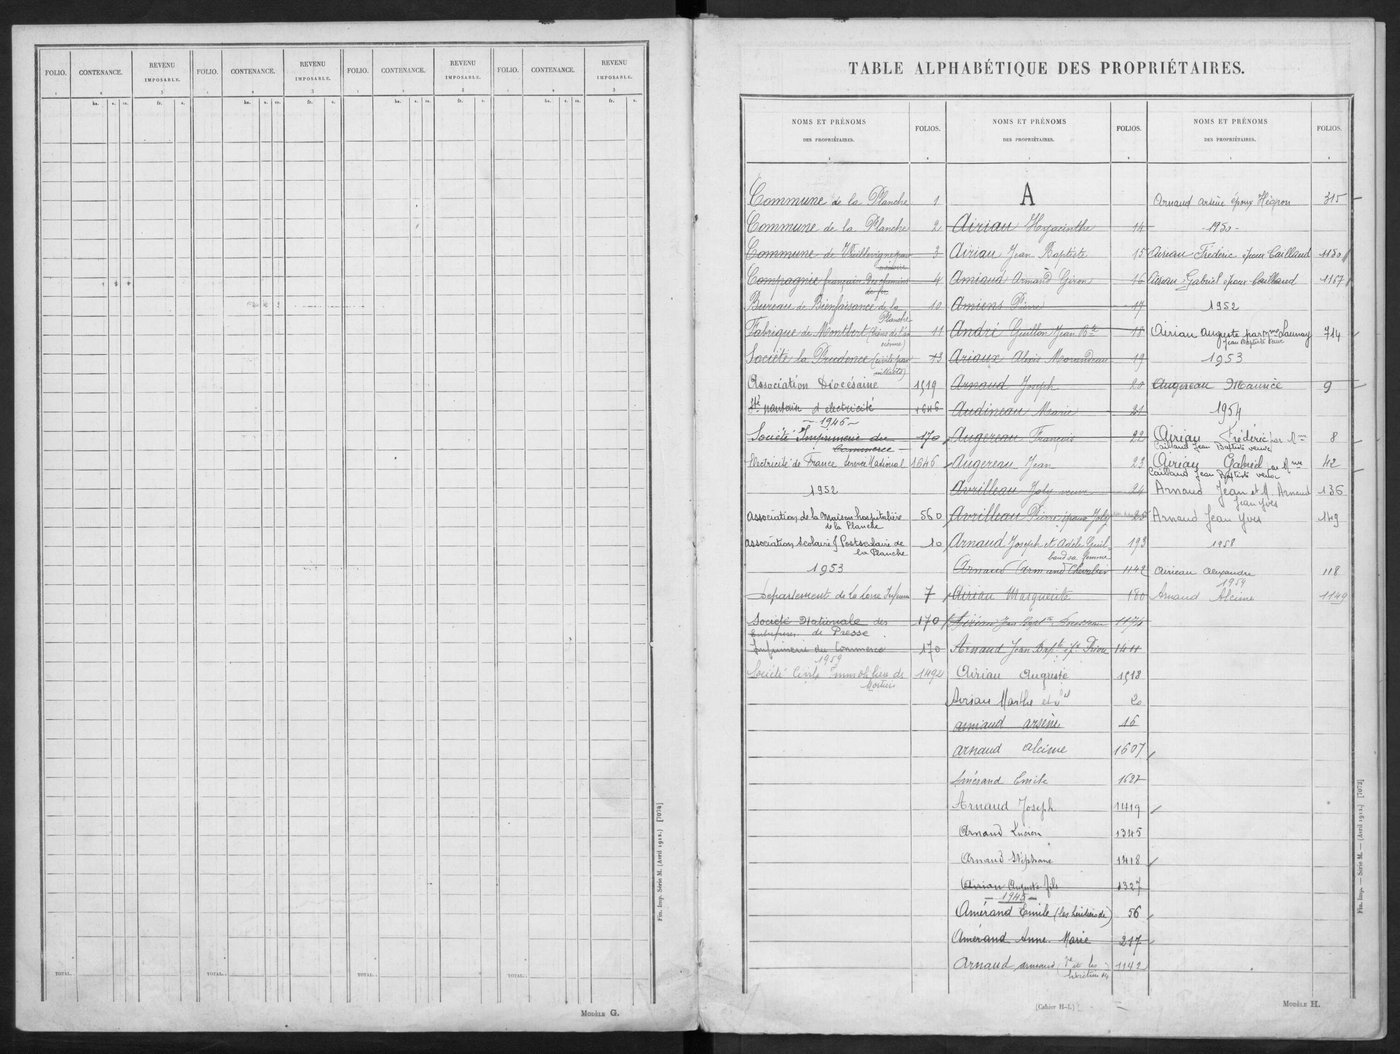 FOLIO. CONTENANCE. REVENU IMPOSABLE. FOLIO. CONTENANCE. REVENU IMPOSABLE. FOLIO. CONTENANCE. REVENU IMPOSABLE. FOLIO. CONTENANCE. REVENU IMPOSABLE.
1 2 3 1 2 3 1 2 3 1 2 3
ha. a. ca. fr. c. ha. a. ca. fr. c. ha. a. ca. fr. c. ha. a. ca. fr. c.
TOTAL. TOTAL. TOTAL. TOTAL.
Fin. Imp. Série M. (Avril 1912.) [7074]
MODÈLE G.
TABLE ALPHABÉTIQUE DES PROPRIÉTAIRES.
NOMS ET PRÉNOMS DES PROPRIÉTAIRES. FOLIOS. NOMS ET PRÉNOMS DES PROPRIÉTAIRES. FOLIOS. NOMS ET PRÉNOMS DES PROPRIÉTAIRES. FOLIOS.
Commune de la Planche 1
Commune de la Planche 2
Commune de Vieillevigne 3
Compagnie française des chemins de fer 4
Bureau de Bienfaisance de la Planche 10
Fabrique de Montbert 11
Société la Prudence 13
Association Diocésaine 1519
Sté nantaise d'électricité 1646
1946
Société Imprimerie du Commerce 170
Electricité de France Service National 1646
1952
Association de la Maison hospitalière de la Planche 560
Association Scolaire & Postscolaire de la Planche 10
1953
Département de la Loire Infre 7
Société Nationale des Entreprises de Presse 170
Imprimerie du Commerce 170
1959
Société Civile Immobilière de 1492
A
Airiau Hyacinthe 14
Airiau Jean Baptiste 15
Amiaud Armand 16
Amiens Pierre 17
André Guillon Jean Bte 18
Ariaux Alexis 19
Arnaud Joseph 20
Audineau Marie 21
Augereau François 22
Augereau Jean 23
Avrilleau Joly veuve 24
Avrilleau Pierre époux Joly 25
Arnaud Joseph et Adèle Guilbaud sa femme 193
Arnaud Armand Chevalier 1142
Airiau Marguerite 180
1174
Arnaud Jean Bapte 1411
Airiau Auguste 1513
Airiau Marthe 20
Amiaud Arsène 16
Arnaud Alcime 1607
Amérand Emile 1627
Arnaud Joseph 1419
Arnaud Lucien 1345
Arnaud Stéphane 1418
Airiau Auguste fils 1327
1945
Amérand Emile (les héritiers de) 56
Amérand Anne Marie 217
Arnaud Armand 1142
Arnaud Arsène époux Hégron 315
1950
Airiau Frédéric époux Caillaud 1150
Airiau Gabriel époux Caillaud 1157
1952
Airiau Auguste par Mme Launay Jean Baptiste Veuve 714
1953
Augereau Maurice 9
1954
Airiau Frédéric par Mme Caillaud Jean Baptiste veuve 8
Airiau Gabriel par Mme Caillaud Jean Baptiste veuve 42
Arnaud Jean et M. Arnaud Jean Yves 136
Arnaud Jean Yves 149
1958
Airieau Alexandre 118
1959
Arnaud Alcime 1149
(Cahier H-1.)
MODÈLE H.
Fin. Imp. — Série M. — (Avril 1912.) [7072]